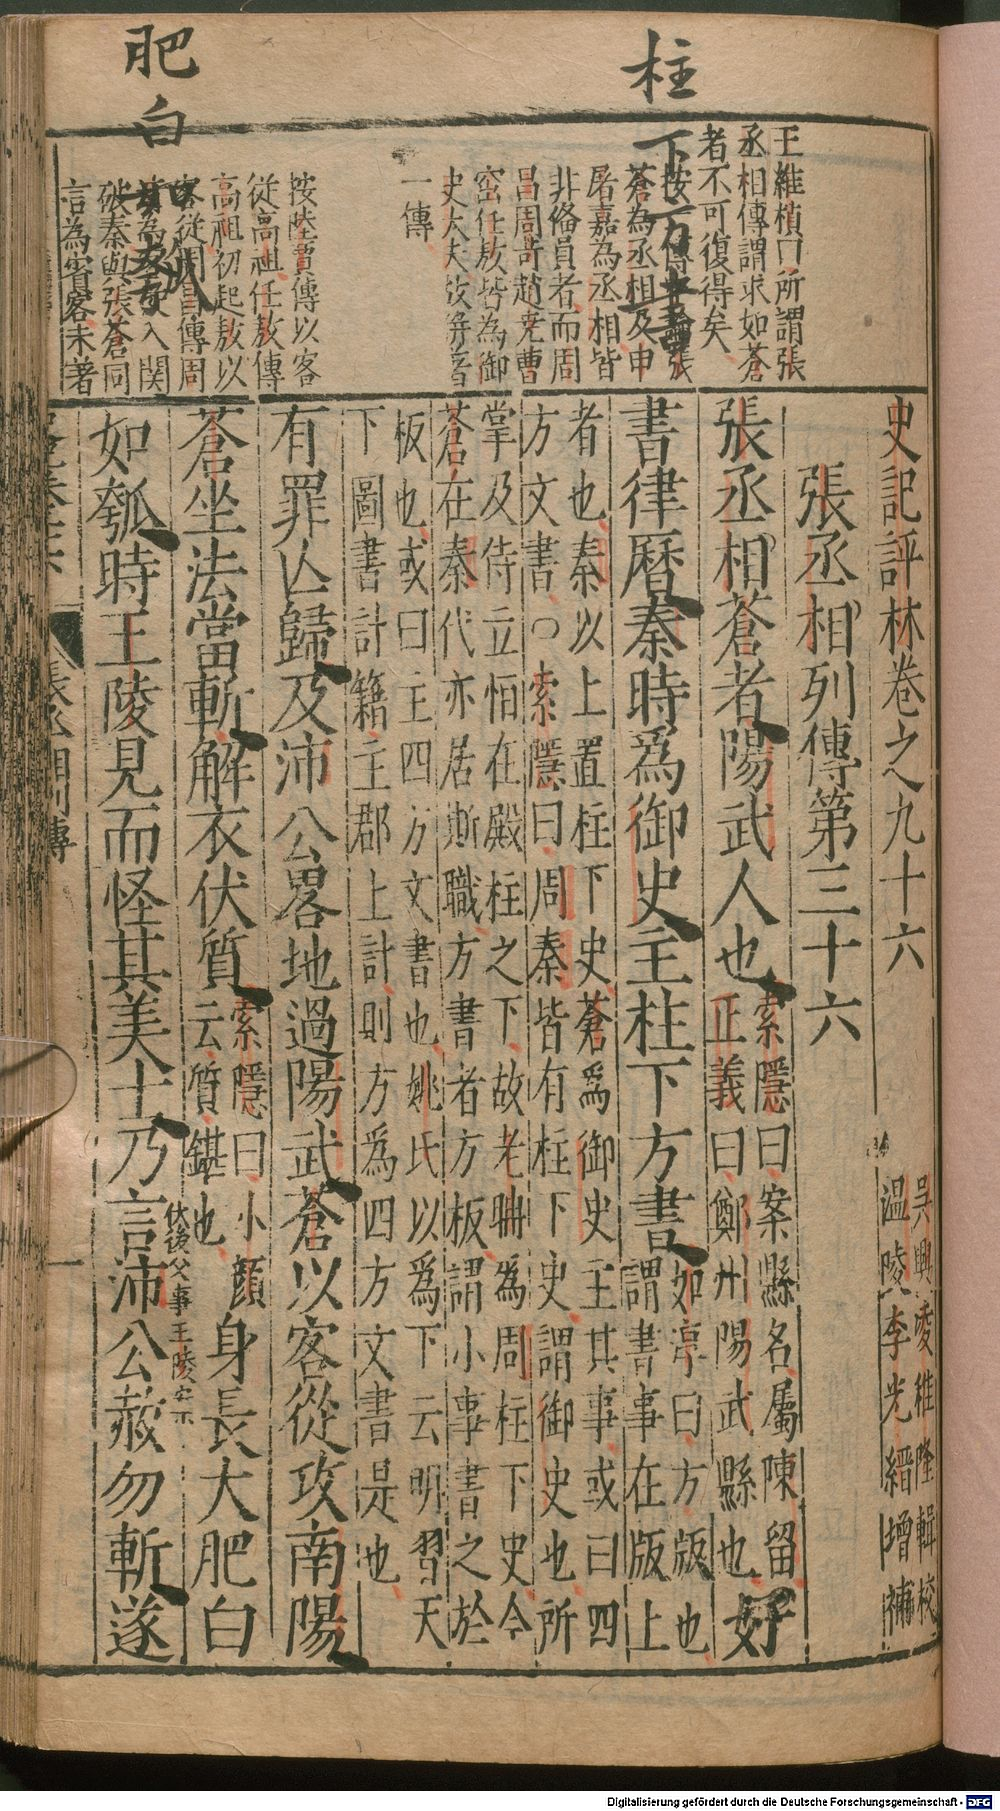 柱
下
肥
白
王維楨曰所謂張
丞相傳謂求如蒼
者不可復得矣
蒼為丞相及申
屠嘉為丞相皆
非俻員者而周
昌周苛趙尭曹
窋任敖皆為御
史大夫故備著
一傳
按陸賈傳以客
從高祖任敖傳
高祖初起敖以
客從周昌傳周
入関
破秦與張蒼同
言為賓客未著
史記評林卷之九十六
吳興凌稚隆輯校
溫陵李光縉增補
張丞相列傳第三十六
張丞相蒼者陽武人也
索隱曰案縣名屬陳留
正義曰鄭州陽武縣也
好
書律曆秦時爲御史主柱下方書
如淳曰方版也
謂書事在版上
者也秦以上置柱下史蒼爲御史主其事或曰四
方文書○索隱曰周秦皆有柱下史謂御史也所
掌及侍立怕在殿柱之下故老聃為周柱下史今
蒼在秦代亦居斯職方書者方板謂小事書之於
板也或曰主四方文書也姚氏以爲下云明習天
下圖書計籍主郡上計則方為四方文書是也
有罪亾歸及沛公畧地過陽武蒼以客從攻南陽
蒼坐法當斬解衣伏質
索隱曰小顔
云質鍖也
身長大肥白
伏後父事王陵案
如瓠時王陵見而怪其美士乃言沛公赦勿斬遂
張丞相列傳
一
Digitalisierung gefördert durch die Deutsche Forschungsgemeinschaft - DFG